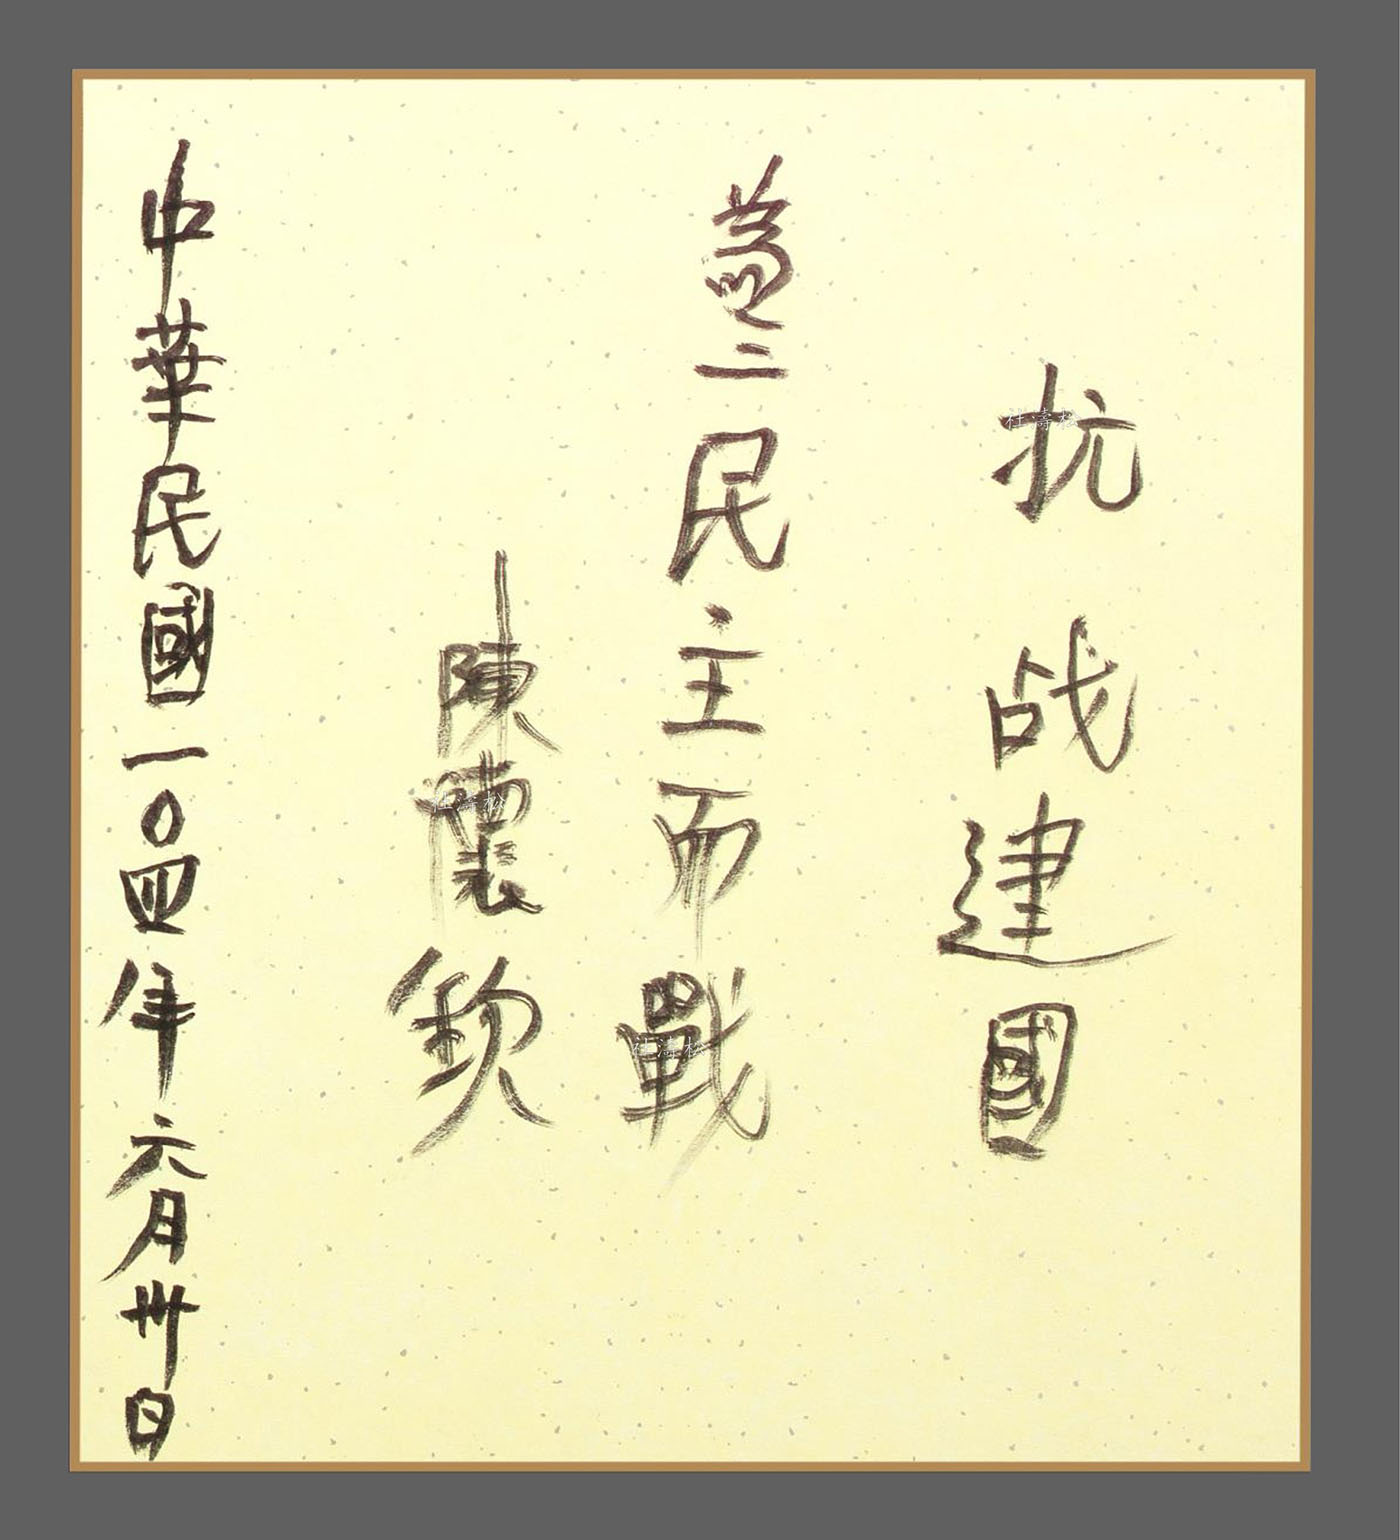 抗战建國
為三民主而戰
陳懷欽
中華民國一〇四年六月卅日